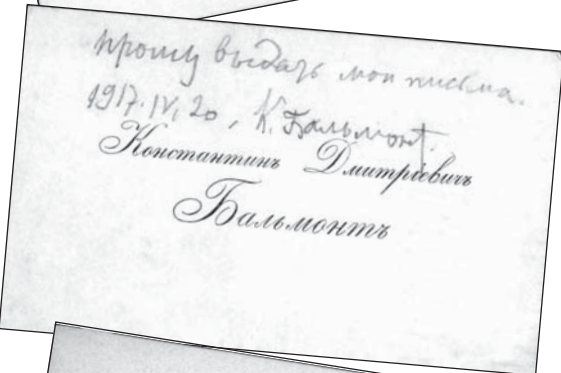 прошу выдать мои письма.
1917.IV.20, К. Бальмонт.
Константинъ Дмитріевичъ
Бальмонтъ